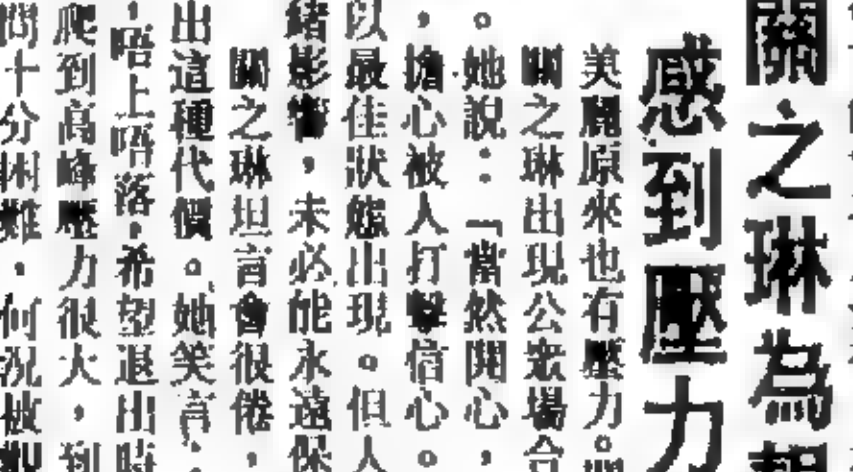 關之琳為
感到壓力
美麗原來也有壓力。
關之琳出現公眾場合
。她說：「當然開心，
，擔心被人打擊信心。
以最佳狀態出現。但人
緒影響，未必能永遠保
關之琳坦言會很倦，
出這種代價。她笑言，
，唔上唔落，希望退出時
爬到高峰壓力很大，到
問十分困難，何況被